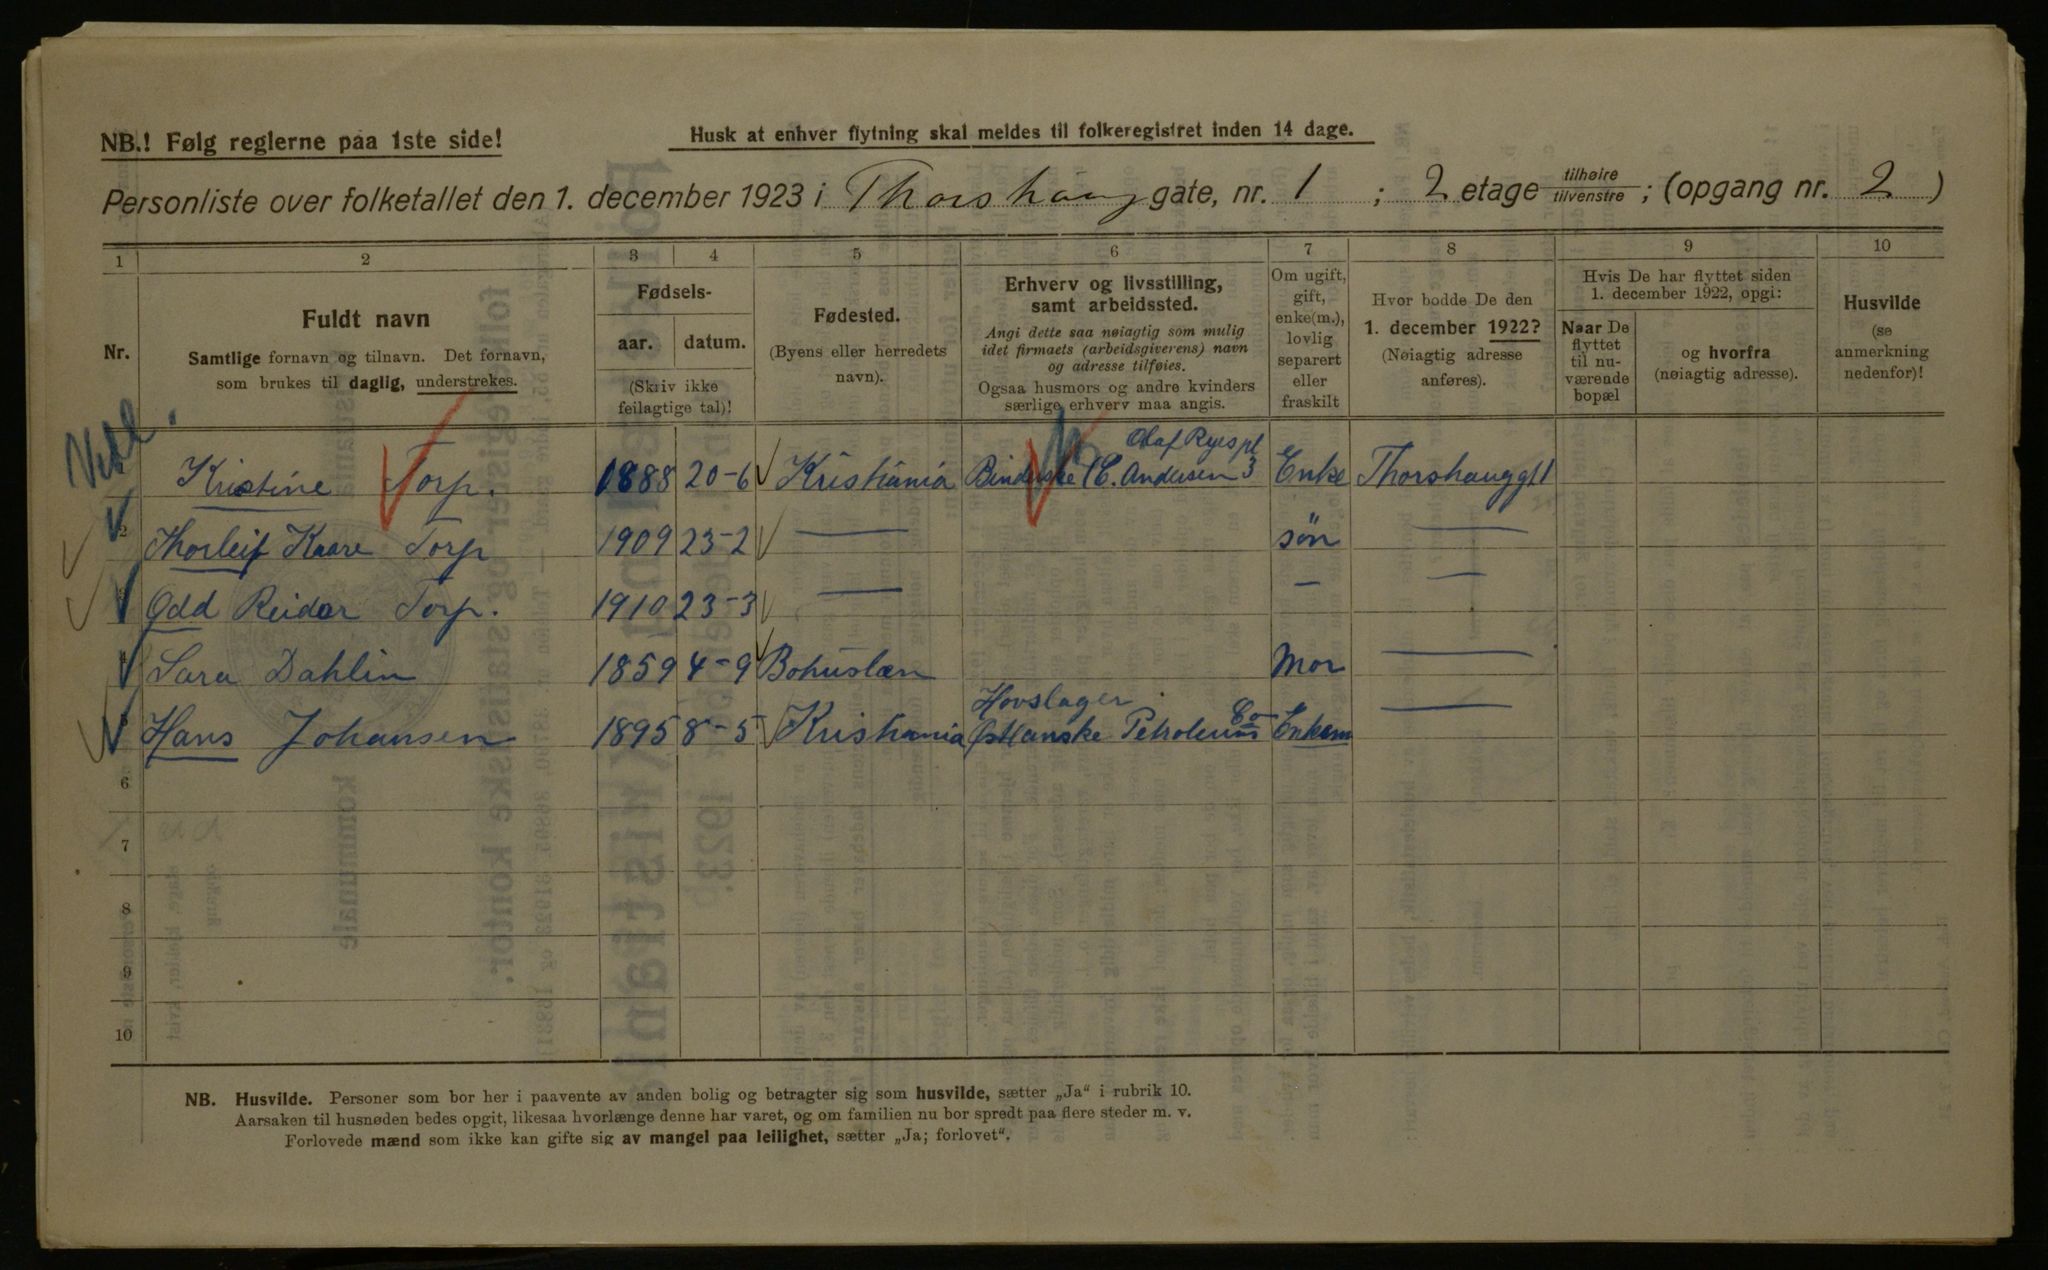 NB.! Følg reglerne paa 1ste side!
Husk at enhver flytning skal meldes til folkeregistret inden 14 dage.
Personliste over folketallet den 1. december 1923 i Thorshaug gate, nr. 1 ; 2 etage tilhøire tilvenstre ; (opgang nr. 2 )
1 2 3 4 5 6 7 8 9 10
Nr.
Fuldt navn
Samtlige fornavn og tilnavn. Det fornavn,
som brukes til daglig, understrekes.
Fødsels-
aar. datum.
(Skriv ikke
feilagtige tal)!
Fødested.
(Byens eller herredets
navn).
Erhverv og livsstilling,
samt arbeidssted.
Angi dette saa nøiagtig som mulig
idet firmaets (arbeidsgiverens) navn
og adresse tilføies.
Ogsaa husmors og andre kvinders
særlige erhverv maa angis.
Om ugift,
gift,
enke(m.),
lovlig
separert
eller
fraskilt
Hvor bodde De den
1. december 1922?
(Nøiagtig adresse
anføres).
Hvis De har flyttet siden
1. december 1922, opgi:
Naar De
flyttet
til nu-
værende
bopæl
og hvorfra
(nøiagtig adresse).
Husvilde
(se
anmerkning
nedenfor)!
Olaf Ryes pl
Kristine Torp. 1888 20-6 Kristiania Binderske C. Andersen 3 Enke Thorshauggt 1
2 Thorleif Kaare Torp 1909 23-2 — søn —
Odd Reidar Torp. 1910 23-3 — — —
Sara Dahlin 1859 4-9 Bohuslæn Mor —
Hovslager
Hans Johansen 1895 8-5 Kristiania Østlanske Petroleum Co Enkem —
6
7
8
9
10
NB. Husvilde. Personer som bor her i paavente av anden bolig og betragter sig som husvilde, sætter „Ja“ i rubrik 10.
Aarsaken til husnøden bedes opgit, likesaa hvorlænge denne har varet, og om familien nu bor spredt paa flere steder m. v.
Forlovede mænd som ikke kan gifte sig av mangel paa leilighet, sætter „Ja; forlovet“.